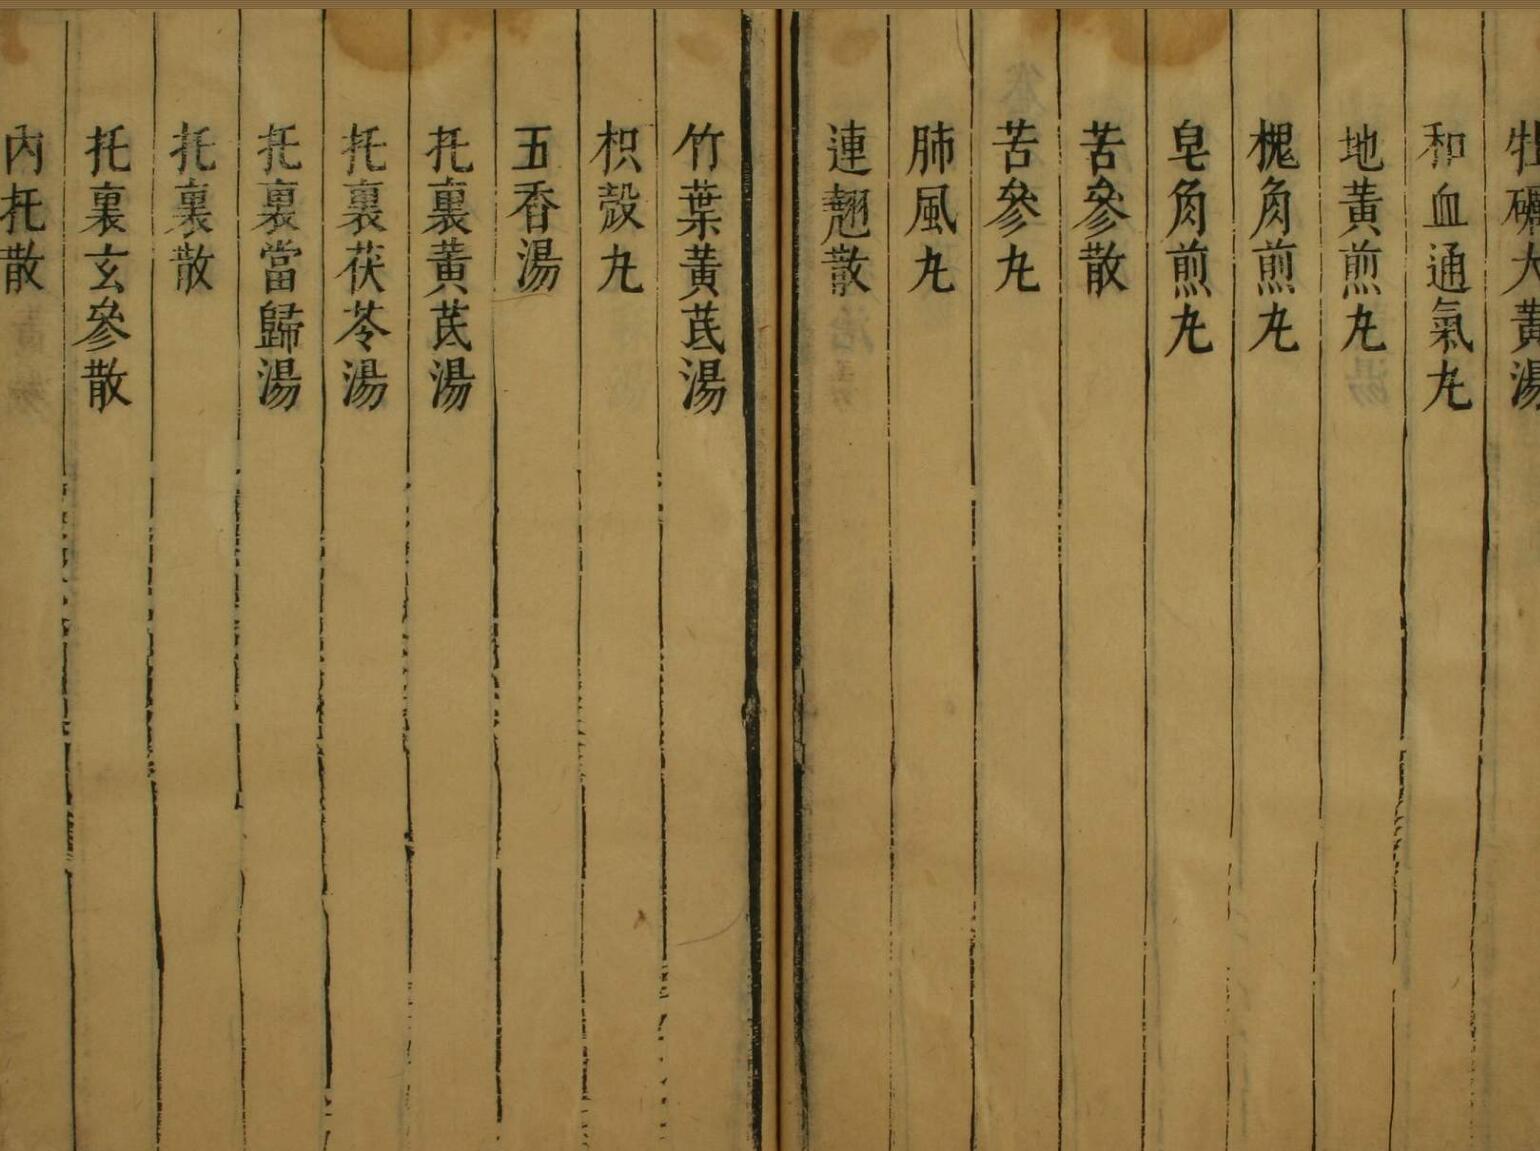 牡礪大黄湯
和血通氣丸
地黄煎丸
槐角煎丸
皂角煎丸
苦參散
苦參丸
肺風丸
連翹散
竹葉黄芪湯
枳殼丸
五香湯
托裏黄芪湯
托裏茯苓湯
托裏當歸湯
托裏散
托裏玄參散
内托散